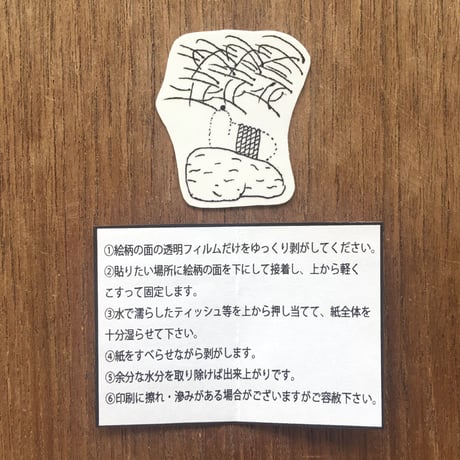 ①絵柄の面の透明フィルムだけをゆっくり剥がしてください。
②貼りたい場所に絵柄の面を下にして接着し、上から軽く
こすって固定します。
③水で濡らしたティッシュ等を上から押し当てて、紙全体を
十分湿らせて下さい。
④紙をすべらせながら剥がします。
⑤余分な水分を取り除けば出来上がりです。
⑥印刷に擦れ・滲みがある場合がございますがご容赦下さい。